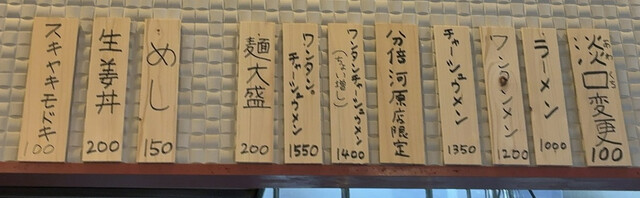 淡口変更
100
ラーメン
1000
ワンタンメン
1200
チャーシュウメン
1350
分倍河原店限定
ワンタンチャーシュウメン
(ちょい増し)
1400
ワンタン
チャーシュウメン
1550
麺大盛
200
めし
150
生姜丼
200
スキヤキモドキ
100